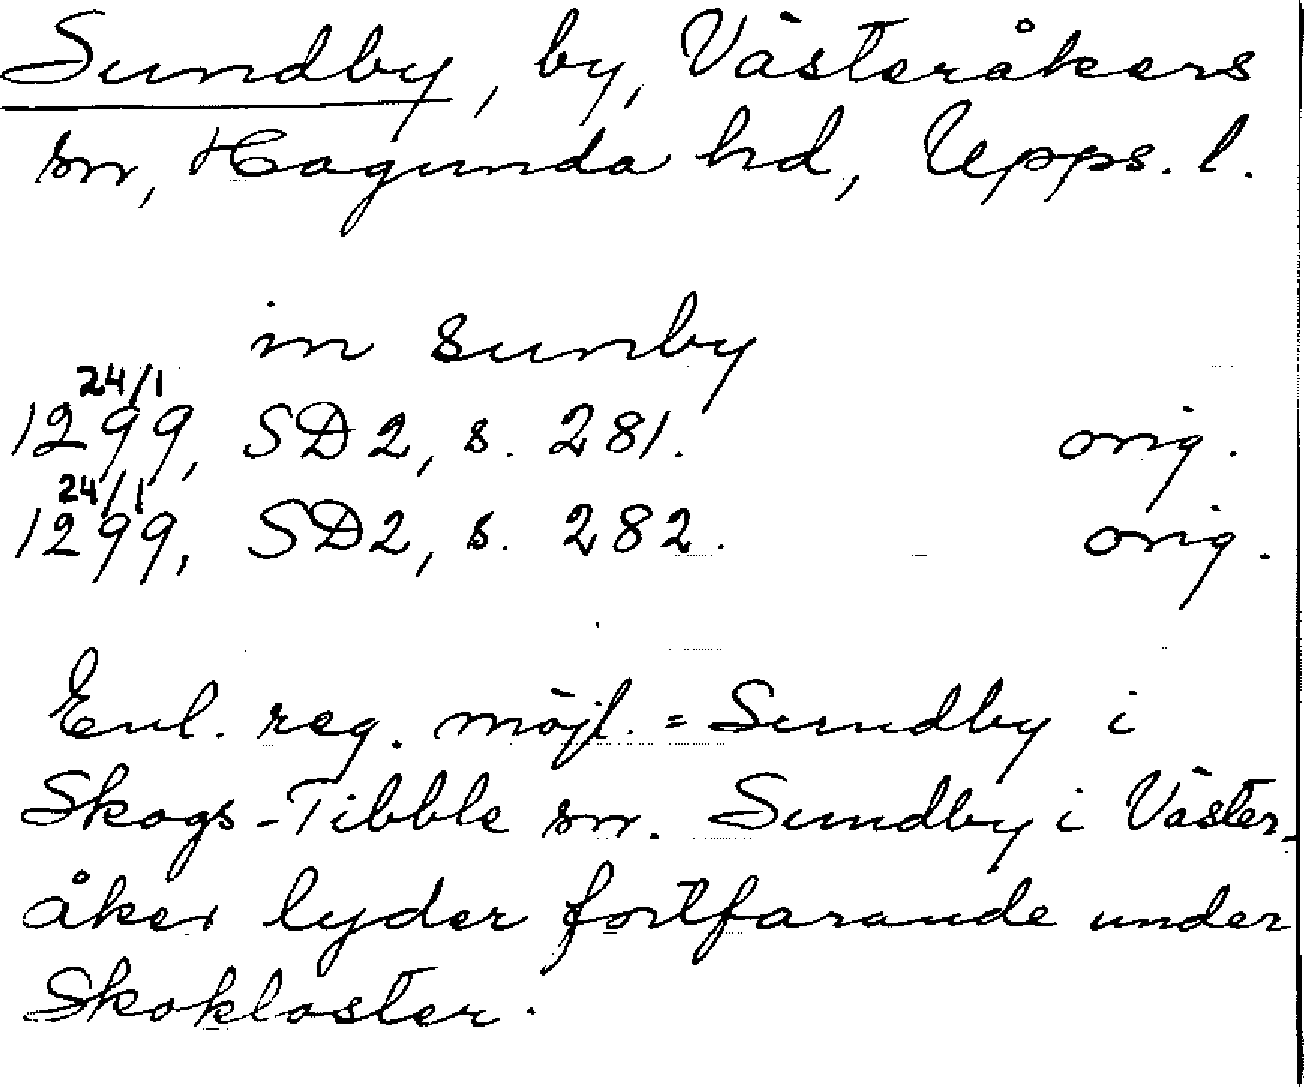 Sundby, by, Västeråkers
sn, Hagunda hd, Upps. l.
in sunby
24/1
1299, SD2, s. 281. orig.
24/1
1299, SD2, s. 282. orig.
Enl. reg. möjl. = Sundby i
Skogs-Tibble sn. Sundby i Väster-
åker lyder fortfarande under
Skokloster.